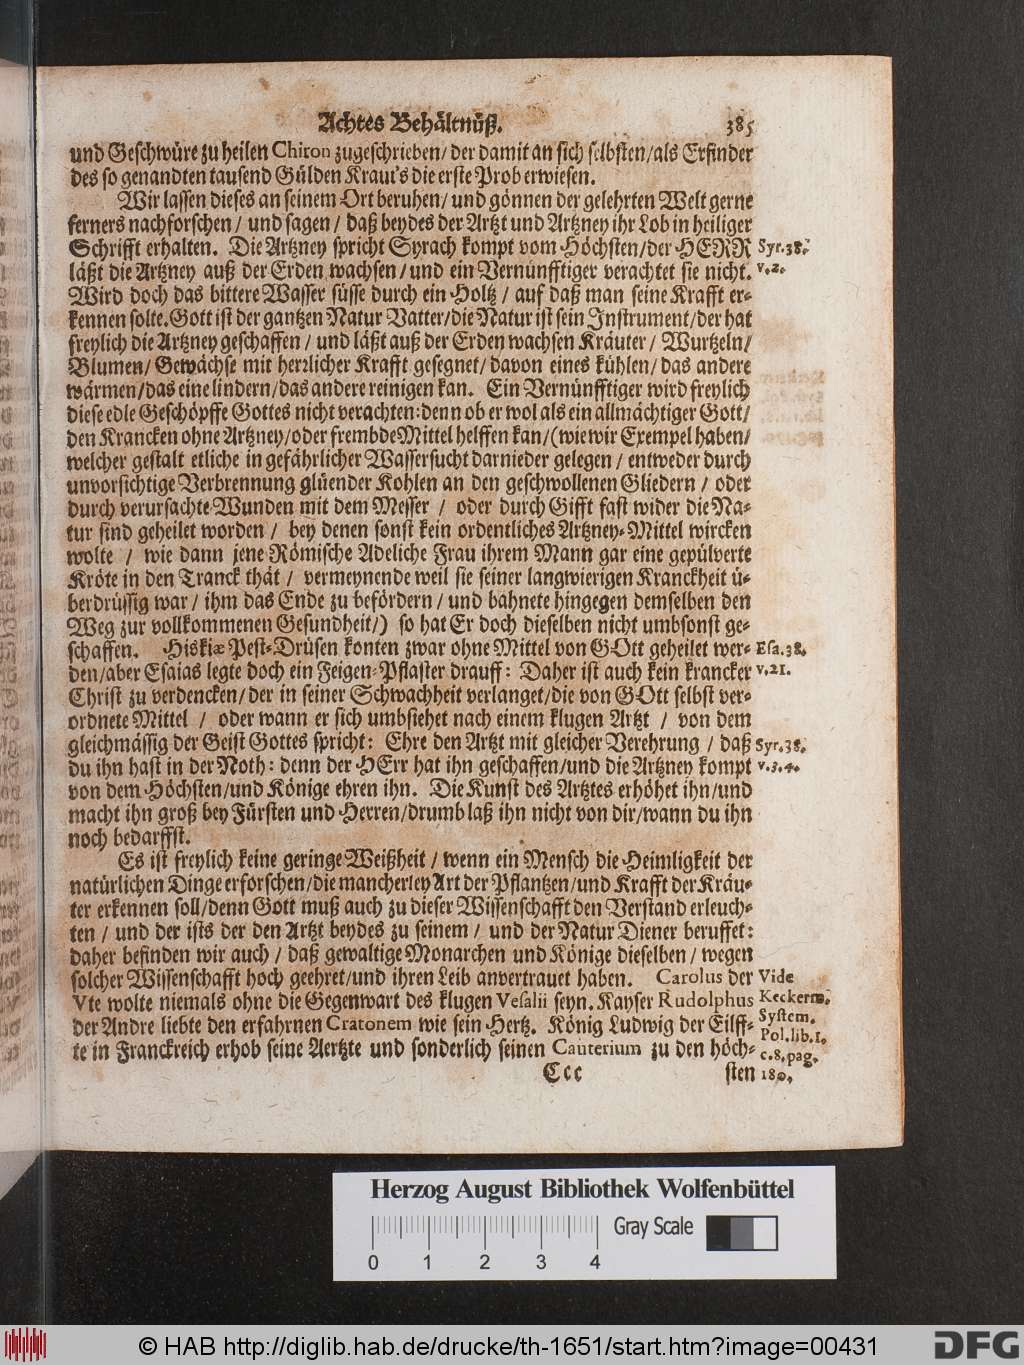 Achtes Behältnüß. 385
und Geschwüre zu heilen Chiron zugeschrieben/ der damit an sich selbsten/als Erfinder
des so genandten tausend Gülden Kraut's die erste Prob erwiesen.
Wir lassen dieses an seinem Ort beruhen/ und gönnen der gelehrten Welt gerne
ferners nachforschen / und sagen / daß beydes der Artzt und Artzney ihr Lob in heiliger
Schrifft erhalten. Die Artzney spricht Syrach kompt vom Höchsten/der HERR Syr.38.
läßt die Artzney auß der Erden wachsen/und ein Vernünfftiger verachtet sie nicht. v.2.
Wird doch das bittere Wasser süsse durch ein Holtz / auf daß man seine Krafft er-
kennen solte. Gott ist der gantzen Natur Vatter/die Natur ist sein Instrument/der hat
freylich die Artzney geschaffen / und läßt auß der Erden wachsen Kräuter / Wurtzeln/
Blumen/ Gewächse mit herrlicher Krafft gesegnet/davon eines kühlen/das andere
wärmen/das eine lindern/das andere reinigen kan. Ein Vernünfftiger wird freylich
diese edle Geschöpffe Gottes nicht verachten:denn ob er wol als ein allmächtiger Gott/
den Krancken ohne Artzney/oder frembde Mittel helffen kan/(wie wir Exempel haben/
welcher gestalt etliche in gefährlicher Wassersucht darnieder gelegen / entweder durch
unvorsichtige Verbrennung glüender Kohlen an den geschwollenen Gliedern / oder
durch verursachte Wunden mit dem Messer / oder durch Gifft fast wider die Na-
tur sind geheilet worden / bey denen sonst kein ordentliches Artzney-Mittel wircken
wolte / wie dann jene Römische Adeliche Frau ihrem Mann gar eine gepülverte
Kröte in den Tranck thät / vermeynende weil sie seiner langwierigen Kranckheit ü-
berdrüssig war/ ihm das Ende zu befördern/ und bahnete hingegen demselben den
Weg zur vollkommenen Gesundheit/) so hat Er doch dieselben nicht umbsonst ge-
schaffen. Hiskiæ Pest-Drüsen konten zwar ohne Mittel von GOtt geheilet wer- Esa.38.
den/aber Esaias legte doch ein Feigen-Pflaster drauff: Daher ist auch kein krancker v.21.
Christ zu verdencken/der in seiner Schwachheit verlanget/die von GOtt selbst ver-
ordnete Mittel / oder wann er sich umbsiehet nach einem klugen Artzt / von dem
gleichmässig der Geist Gottes spricht: Ehre den Artzt mit gleicher Verehrung / daß Syr.38.
du ihn hast in der Noth: denn der HErr hat ihn geschaffen/und die Artzney kompt v.3.4.
von dem Höchsten/und Könige ehren ihn. Die Kunst des Artztes erhöhet ihn/und
macht ihn groß bey Fürsten und Herren/drumb laß ihn nicht von dir/wann du ihn
noch bedarffst.
Es ist freylich keine geringe Weißheit / wenn ein Mensch die Heimligkeit der
natürlichen Dinge erforschen/die mancherley Art der Pflantzen/und Krafft der Kräu-
ter erkennen soll/denn Gott muß auch zu dieser Wissenschafft den Verstand erleuch-
ten / und der ists der den Artzt beydes zu seinem / und der Natur Diener beruffet:
daher befinden wir auch / daß gewaltige Monarchen und Könige dieselben / wegen
solcher Wissenschafft hoch geehret/und ihren Leib anvertrauet haben. Carolus der Vide
Vte wolte niemals ohne die Gegenwart des klugen Vesalii seyn. Kayser Rudolphus Keckerm.
der Andre liebte den erfahrnen Cratonem wie sein Hertz. König Ludwig der Eilff- System.
te in Franckreich erhob seine Aertzte und sonderlich seinen Cauterium zu den höch- Pol.lib.1.
c.8.pag.
Ccc sten 180.
Herzog August Bibliothek Wolfenbüttel
Gray Scale
0 1 2 3 4
© HAB http://diglib.hab.de/drucke/th-1651/start.htm?image=00431
DFG